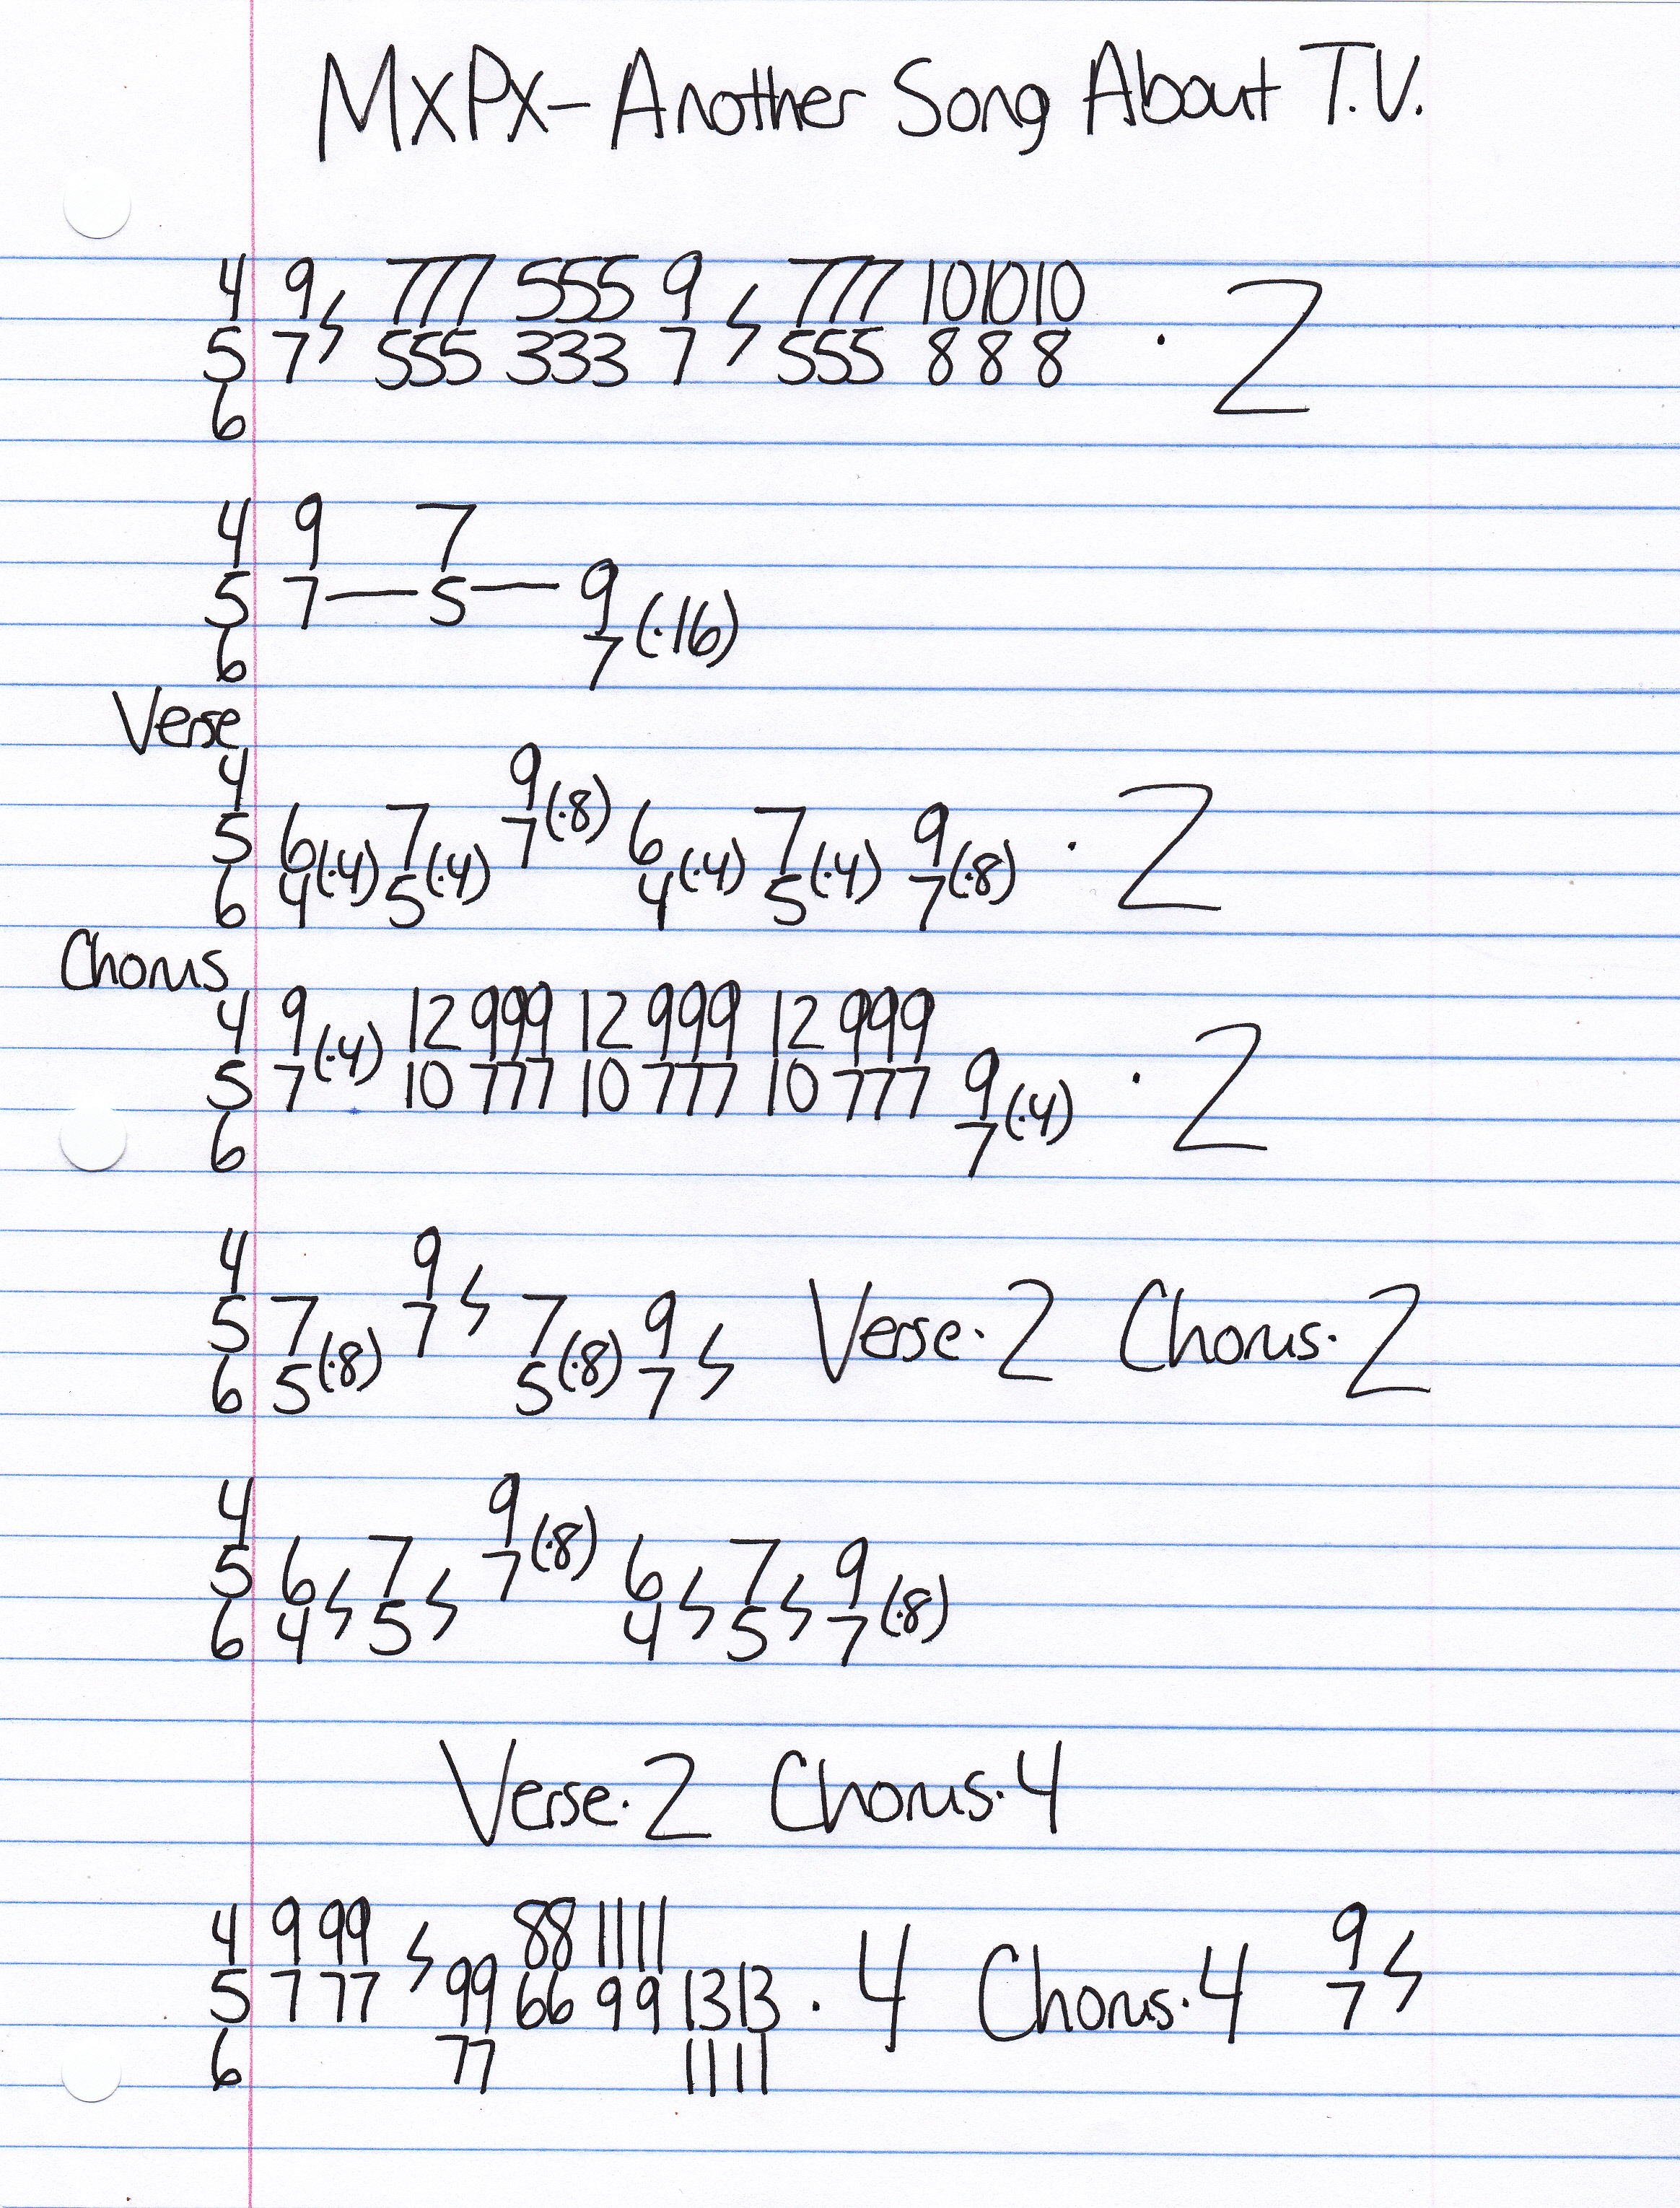 MXPX - Another Song About T.V.
4 9 777 555 9 777 10 10 10
5 7 ϟ 555 333 7 ϟ 555 8 8 8 · 2
6
4 9 7
5 7 — 5 — 9
6 7 (·16)
Verse
4 9
5 6 7 7 (·8) 6 7 9 · 2
6 4 (·4) 5 (·4) 4 (·4) 5 (·4) 7 (·8)
Chorus
4 9 12 999 12 999 12 999
5 7 (·4) 10 777 10 777 10 777 9 · 2
6 7 (·4)
4 9
5 7 7 ϟ 7 9 Verse · 2 Chorus · 2
6 5 (·8) 5 (·8) 7 ϟ
4 9
5 6 7 7 (·8) 6 7 9
6 4 ϟ 5 ϟ 4 ϟ 5 ϟ 7 (·8)
Verse · 2 Chorus · 4
4 9 99 88 11 11 9
5 7 77 ϟ 99 66 9 9 13 13 · 4 Chorus · 4 7 ϟ
6 77 11 11